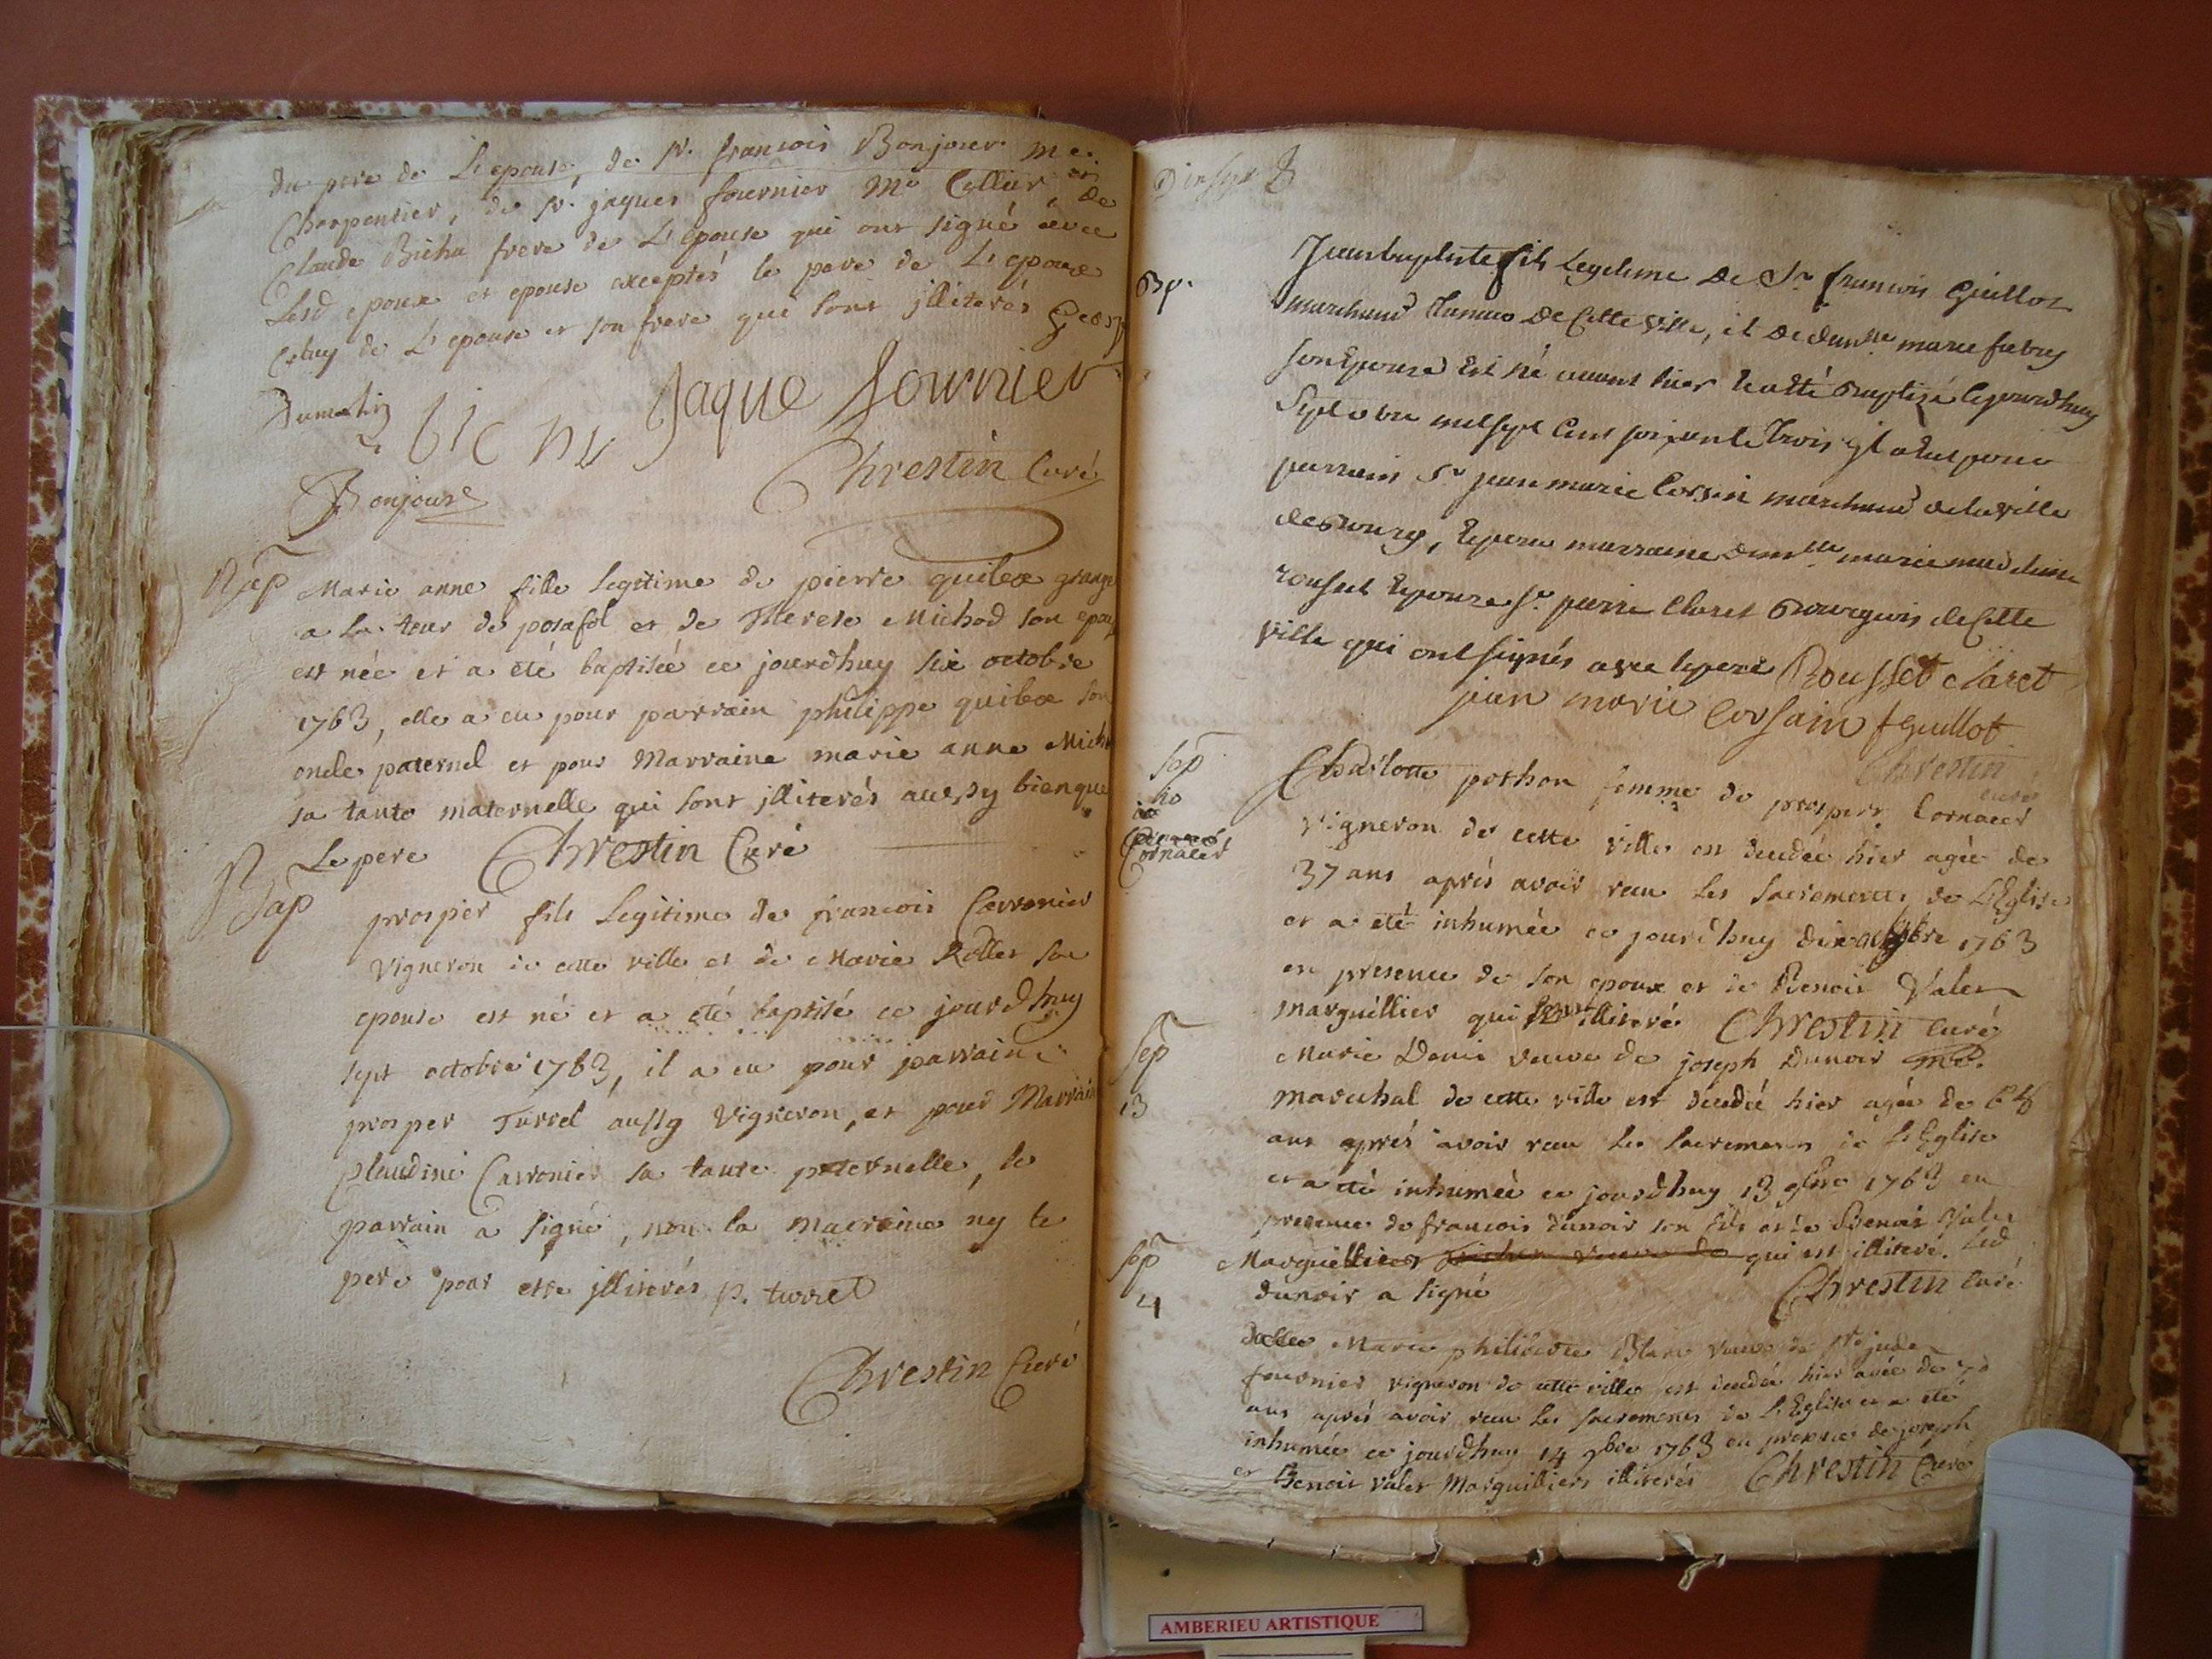 du pere de L'epouse, de Sr. francois Bonjour me.
Charpentier, de Sr. jaques fournier Me Cellier, et de
Claude Bichu frere de L'epouse qui ont signé avec
Lesd epoux et epouse exceptés le pere de L'epoux
Celuy de L'epouse et son frere qui sont jlliterés
Jaque fournier
Chrestin Curé
Bonjour
Bap Marie anne fille legitime de pierre quibox granger
a la tour de posafol et de Therese Michod son epouse
est née et a été baptisée ce jourdhuy six octobre
1763, elle a eu pour parrain philippe quibox son
oncle paternel et pour Marraine marie anne Mich
sa tante maternelle qui sont jlliterés aussy bienque
Le pere Chrestin Curé
Bap prosper fils Legitime de francois Carronier
vigneron de cette ville et de Marie Rollet son
epouse est né et a été baptisé ce jourdhuy
sept octobre 1763, il a eu pour parrain
prosper Turrel aussy vigneron, et pour Marraine
Claudine Carronier sa tante paternelle, le
parrain a signé, non la marraine ny le
pere pour etre jlliterés p. turrel
Chrestin Curé
Dix sept
Bp. Jeanbaptiste fils legitime de Sr francois Guillot
marchand de Cette ville, et de demlle marie fabry
son Epouse Est né avant hier Et a été Baptizé Cejourdhuy
Sept milsept Cent soixante Trois, il a Eut pour
parrain Sr jean marie Corsin marchand de la ville
de Bourg, Et pour marraine demlle marie madelaine
rousset Epouze Sr. pierre Claret Bourgeois de Cette
ville qui ont signés avec le pere Rousset claret
jean marie Corsain fguillot
Chrestin curé
Sep Charlotte pothon femme de prosper Cornacer
10 vigneron de cette ville est decedée hier agée de
Cornacer
37 ans aprés avoir recu les sacrements de L'Eglise
et a eté inhumée ce jourdhuy dix 1763
en presence de son epoux et de Benoit Valet
marguillier qui illiteré Chrestin Curé
Sep Marie Denis veuve de joseph Dunoir me.
13 marechal de cette ville est decedée hier agée de 68
ans aprés avoir recu les sacremens de L'Eglise
et a été inhumée ce jourdhuy 13 9bre 1763 en
presence de francois dunoir son fils et de Benoit Valet
Sep Marguillier qui est illiteré. Led
4 dunoir a signé Chrestin Curé
delle Marie philiberte Blanc veuve de Sr jude
fournier vigneron de cette ville est decedée hier agée de 70
ans aprés avoir recu les sacremens de L'Eglise et a été
inhumée ce jourdhuy 14 9bre 1763 en presence de joseph
et Benoit Valet Marguilliers illiterés Chrestin Curé
AMBERIEU ARTISTIQUE